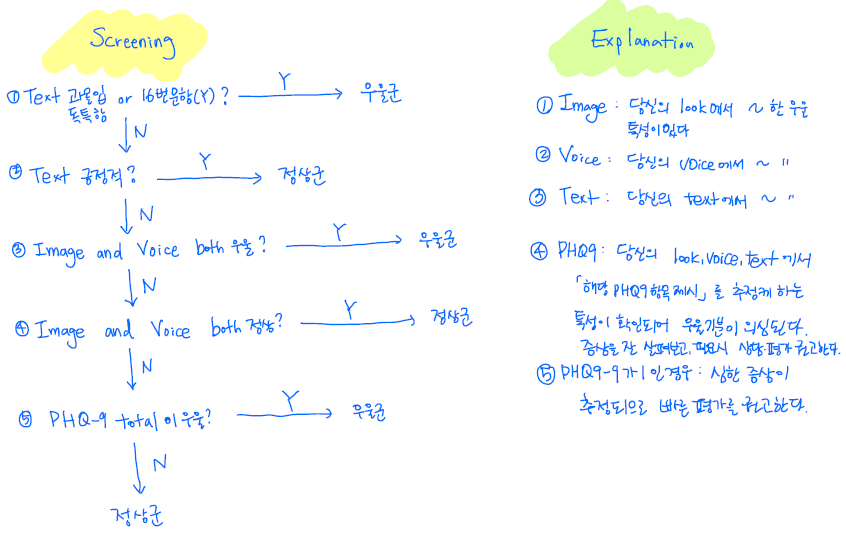 Screening
① Text 과몰입 or 16번문항(Y)? Y 우울군
독특함
N
② Text 긍정적? Y 정상군
N
③ Image and Voice both 우울? Y 우울군
N
④ Image and Voice both 정상? Y 정상군
N
⑤ PHQ-9 total 이 우울? Y 우울군
N
정상군
Explanation
① Image : 당신의 look에서 ~ 한 우울
특성이 있다
② Voice : 당신의 voice에서 ~ "
③ Text : 당신의 text에서 ~ "
④ PHQ9 : 당신의 look, voice, text에서
「해당 PHQ9항목 제시」를 추정케 하는
특성이 확인되어 우울기분이 의심된다.
증상을 잘 살펴보고, 필요시 상담·평가 권고한다.
⑤ PHQ9-9가 1인경우 : 심한 증상이
추정되므로 빠른 평가를 권고한다.